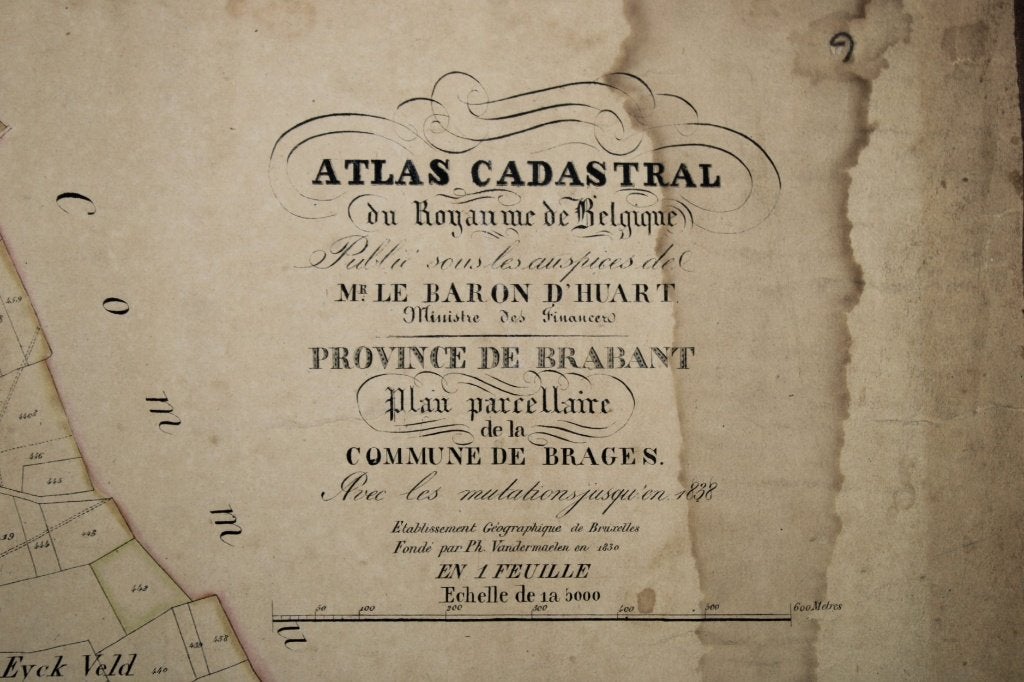 9
ATLAS CADASTRAL
du Royaume de Belgique
Publié sous les auspices de
MR. LE BARON D'HUART
Ministre des Finances
PROVINCE DE BRABANT
Plan parcellaire
de la
COMMUNE DE BRAGES.
Avec les mutations jusqu'en 1838
Etablissement Géographique de Bruxelles
Fondé par Ph. Vandermaelen en 1830
EN 1 FEUILLE
Echelle de 1 a 5000
50 100 200 300 400 500 600 Mètres
C o m m u
459
446
445
443
444
442
439 438
440
Eyck Veld